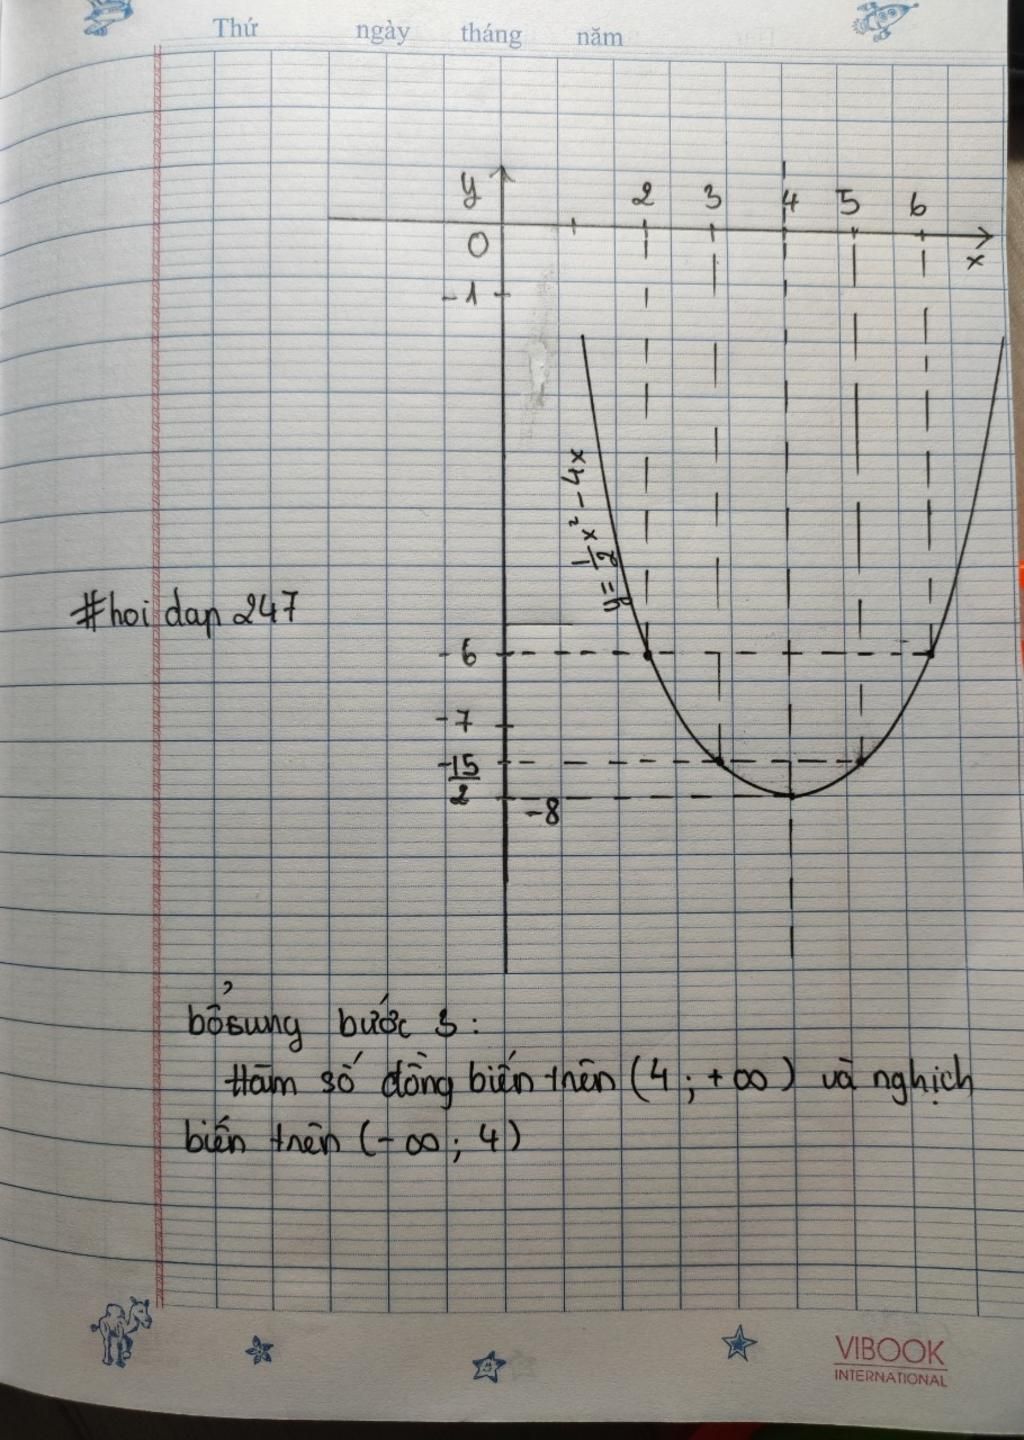 Thứ ngày tháng năm
y 2 3 4 5 6
O x
-1
y = 1/2 x² - 4x
#hoi dap 247
-6
-7
-15/2
-8
bổ sung bước 3:
Hàm số đồng biến trên (4; +∞) và nghịch
biến trên (-∞; 4)
VIBOOK
INTERNATIONAL